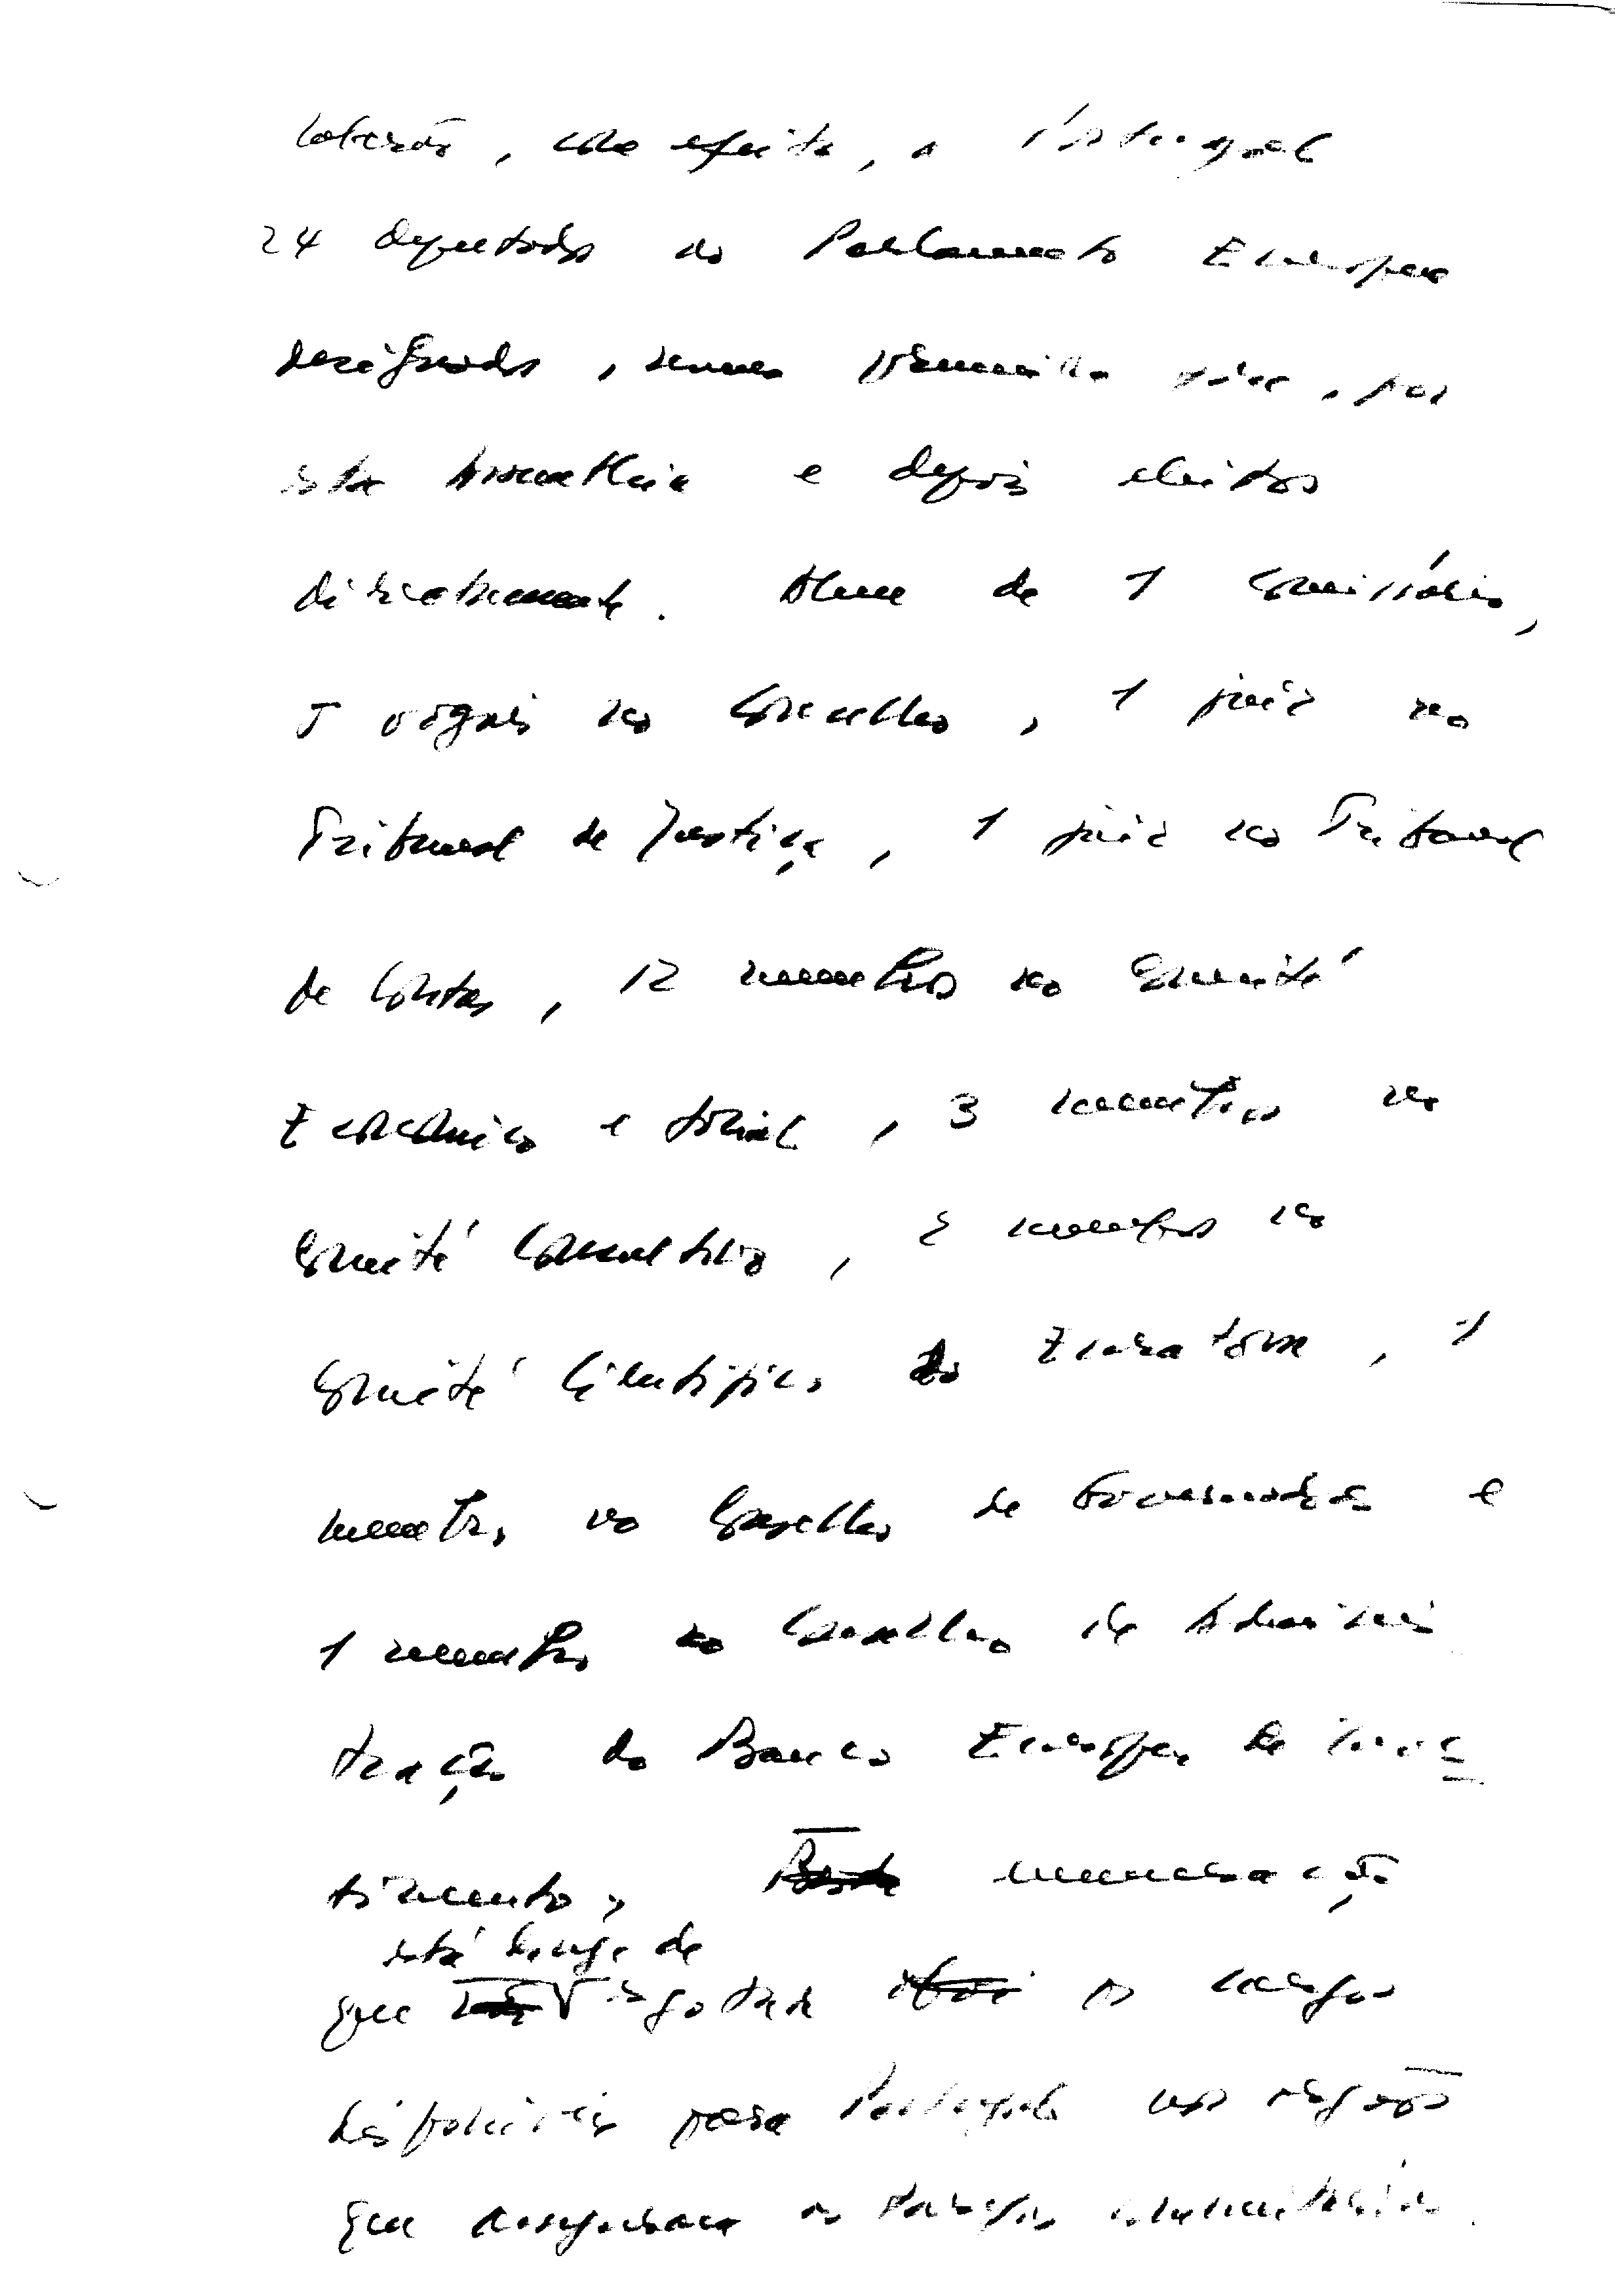 Caberão, com efeito, a Portugal
24 deputados ao Parlamento Europeu
designados, numa primeira fase, por
esta Assembleia e depois eleitos
directamente. Além de 1 comissário,
5 vogais no Conselho, 1 juiz no
Tribunal de Justiça, 1 juiz no Tribunal
de Contas, 12 membros no Comité
Económico e Social, 3 membros no
Comité Consultivo, 2 membros no
Comité Científico do Euratom, 1
membro no Conselho de Governadores e
1 membro no Conselho de Adminis
tração do Banco Europeu de Inves
timento, enumeração
está longe de
que esgotar os cargos
disponíveis para Portugal nos órgãos
que asseguram as tarefas comunitárias.